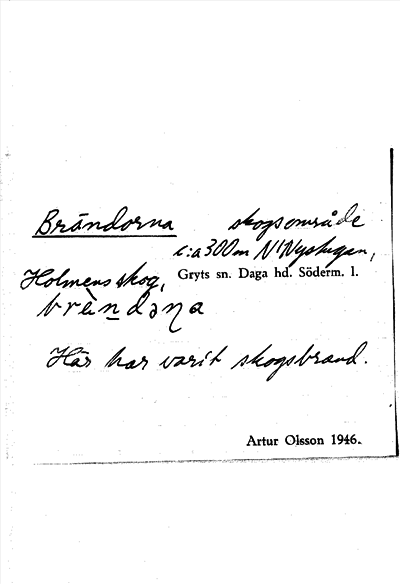 Brändorna skogsområde
c:a 300m N! Nystugan,
Holmens skog, Gryts sn. Daga hd. Söderm. l.
brä̀ndəṇa
Här har varit skogsbrand.
Artur Olsson 1946.